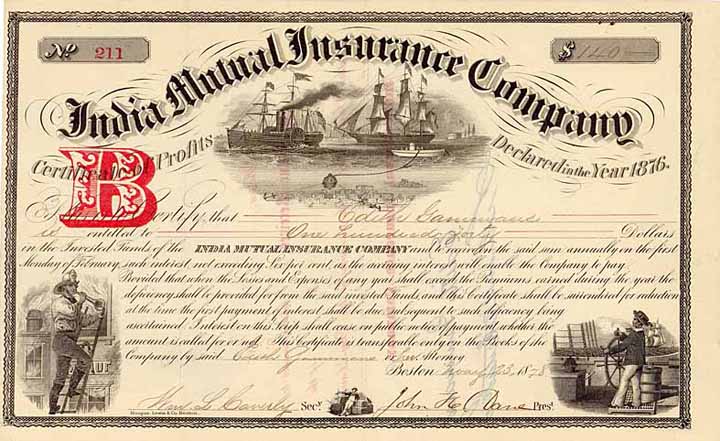 No. 211
$ 140
India Mutual Insurance Company
Certificate of Profits Declared in the Year 1876.
B
This is to Certify, that Edith Gammans
is entitled to One hundred forty Dollars
in the Invested Funds of the INDIA MUTUAL INSURANCE COMPANY and to receive on the said sum annually on the first
Monday of February, such interest, not exceeding Six per cent, as the accruing interest will enable the Company to pay.
Provided that when the Losses and Expenses of any year shall exceed the Premiums earned during the year the
deficiency shall be provided for from the said invested Funds, and this Certificate shall be surrendered for reduction
at the time the first payment of interest shall be due, subsequent to such deficiency being
ascertained. Interest on this Scrip shall cease on public notice of payment, whether the
amount is called for or not. This Certificate is transferable only on the Books of the
Company by said Edith Gammans or Attorney
Boston, May 23, 1878
Secy. John H. Presl.